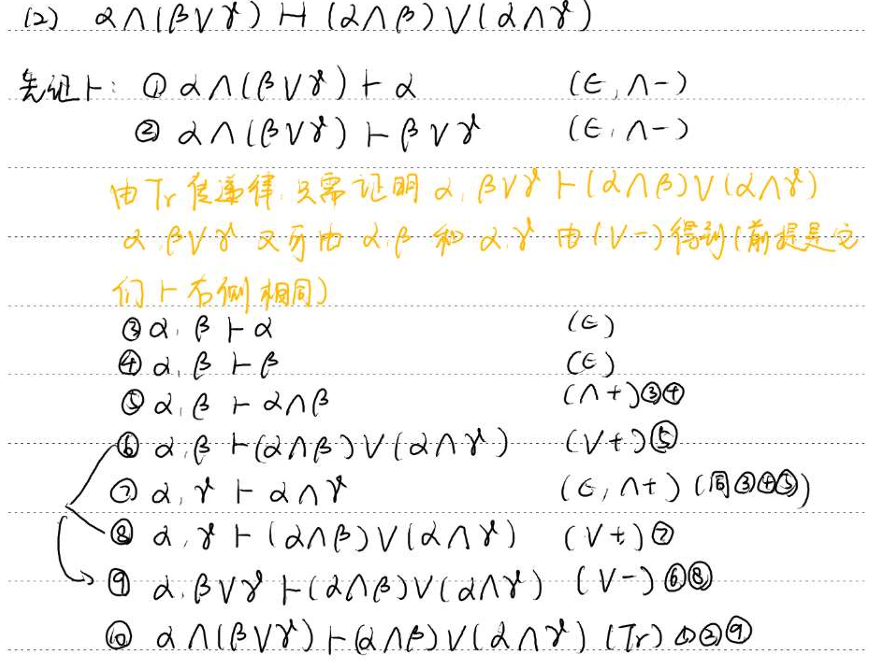 (2) α∧(β∨γ) ⊢⊣ (α∧β)∨(α∧γ)
先证⊢: ① α∧(β∨γ) ⊢ α (∈, ∧-)
② α∧(β∨γ) ⊢ β∨γ (∈, ∧-)
由Tr传递律,只需证明 α, β∨γ ⊢ (α∧β)∨(α∧γ)
α, β∨γ 又可由 α,β 和 α,γ 由(∨-)得到(前提是它
们⊢右侧相同)
③ α, β ⊢ α (∈)
④ α, β ⊢ β (∈)
⑤ α, β ⊢ α∧β (∧+)③④
⑥ α, β ⊢ (α∧β)∨(α∧γ) (∨+)⑤
⑦ α, γ ⊢ α∧γ (∈, ∧+) (同③④⑤)
⑧ α, γ ⊢ (α∧β)∨(α∧γ) (∨+)⑦
⑨ α, β∨γ ⊢ (α∧β)∨(α∧γ) (∨-)⑥⑧
⑩ α∧(β∨γ) ⊢ (α∧β)∨(α∧γ) (Tr)①②⑨